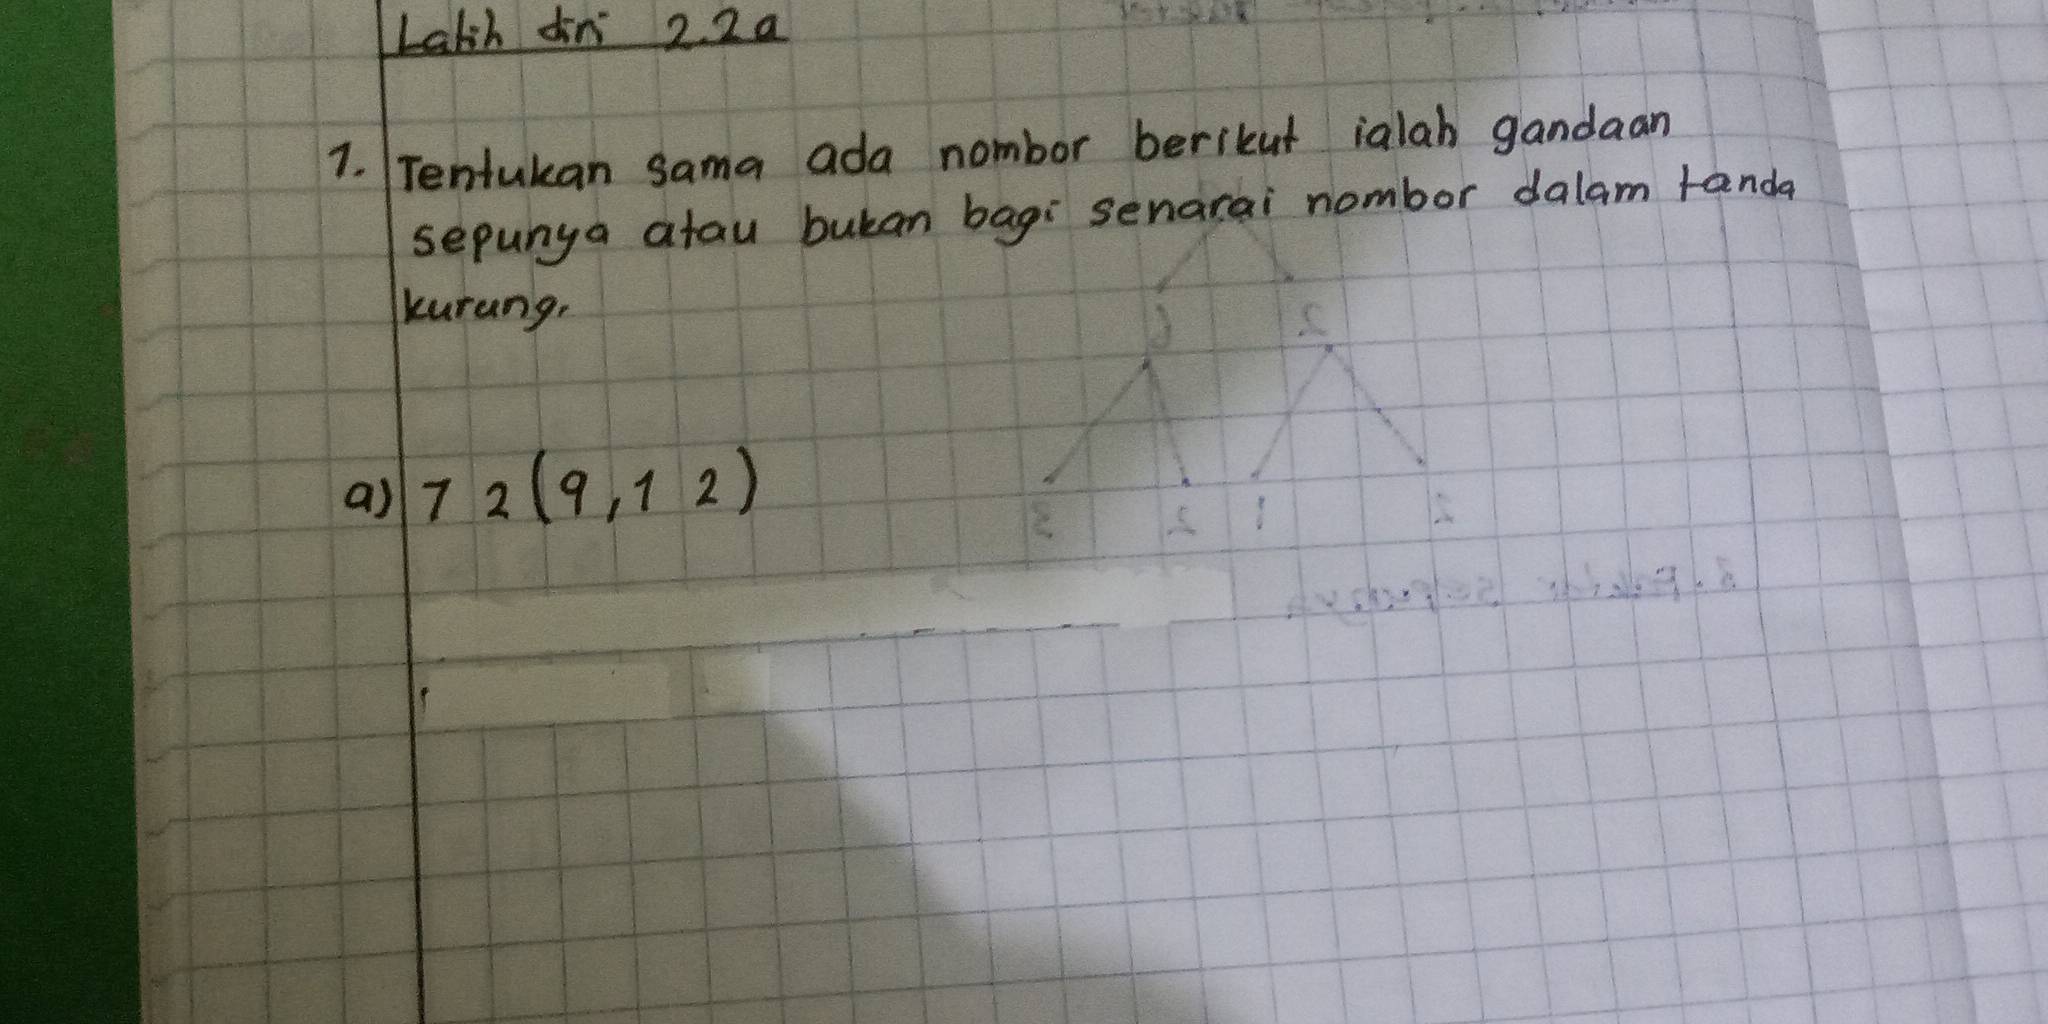 Latih diri 2.2a
1. Tentukan sama ada nombor berikut ialah gandaan
sepunya atau bukan bagi senarai nombor dalam tanda
kurung.
a) 7 2 (9, 1 2)
6 2
3 2 1 2
3. Faktor sepunya